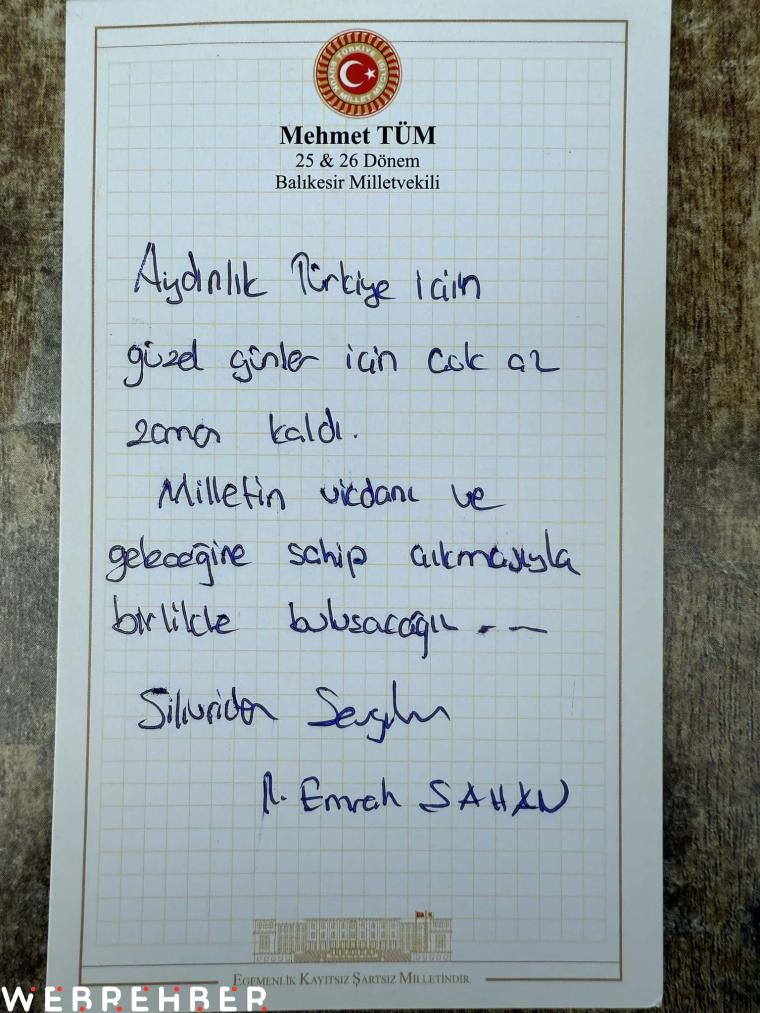 TÜRKİYE BÜYÜK MİLLET MECLİSİ
Mehmet TÜM
25 & 26 Dönem
Balıkesir Milletvekili
Aydınlık Türkiye için
güzel günler için çok az
zaman kaldı.
Milletin vicdanı ve
geleceğine sahip çıkmasıyla
birlikte buluşacağız . —
Silivriden Sevgiler
R. Emrah ŞAHAN
EGEMENLİK KAYITSIZ ŞARTSIZ MİLLETİNDİR.
WEBREHBER